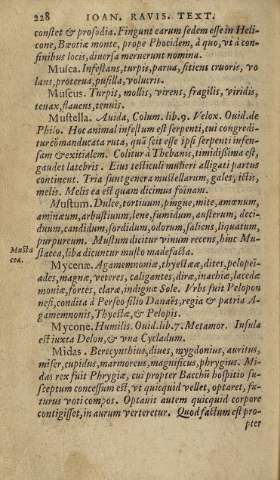 228 IOAN. RAVIS. TEXT.
constet & prosodia. Fingunt earum sedem esse in Heli-
cone, Bœotiæ monte, prope Phocidem, à quo, vt à con-
finibus locis, diuorsa meruerunt nomina.
Musca. Infestans, turpis, parua, sitiens cruoris, vo
lans, proterua, pusilla, volucris.
Muscus. Turpis, mollis, virens, fragilis, viridis,
tenax, flauens, tenuis.
Mustella. Auida, Colum. lib. 9. Velox. Ouid. de
Philo. Hoc animal infestum est serpenti, cui congredi-
tur comanducata ruta, quā scit esse ipsi serpenti infen-
sam & exitialem. Colitur à Thebanis, timidissima est,
gaudet latebris. Eius testiculi mulieri alligati partus
continent. Tria sunt genera mustellarum, gales, ictis,
melis. Melis ea est quam dicimus foinam.
Mustum. Dulce, tortiuum, pingue, mite, amœnum,
aminæum, arbustiuum, lene, fumidum, austerum, deci-
duum, candidum, sordidum, odorum, saliens, liquatum,
purpureum. Mustum dicitur vinum recens, hinc Mu-
Musta
cea.
stacea, liba dicuntur musto madefacta.
Mycenæ. Agamemnoniæ, thyestææ, dites, pelopei-
ades, magnæ, veteres, caligantes, diræ, inachiæ, lacedæ
moniæ, fortes, claræ, indignæ Sole. Vrbs fuit Pelopon
nesi, condita à Perseo filio Danaës, regia & patria A-
gamemnonis, Thyestæ, & Pelopis.
Mycone. Humilis. Ouid. lib. 7. Metamor. Insula
est iuxta Delon, & vna Cycladum.
Midas. Berecynthius, diues, mygdonius, auritus,
miser, cupidus, marmoreus, magnificus, phrygius. Mi-
das rex fuit Phrygiæ, cui propter Bacchū hospitio su-
sceptum concessum est, vt quicquid vellet, optaret, fu-
turus voti compos. Optauit autem quicquid corpore
contigisset, in aurum verteretur. Quod factum est pro-
pter